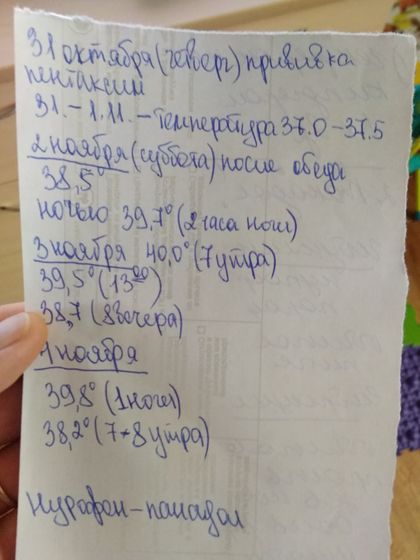 31 октября (четверг) прививка
пентаксим
31. – 1.11. – температура 37.0 – 37.5
2 ноября (суббота) после обеда
38,5°
ночью 39,7° (2 часа ночи)
3 ноября 40,0° (7 утра)
39,5° (13⁰⁰)
38,7 (8 вечера)
4 ноября
39,8° (1 ночи)
38,2° (7-8 утра)
Нурофен – панадол